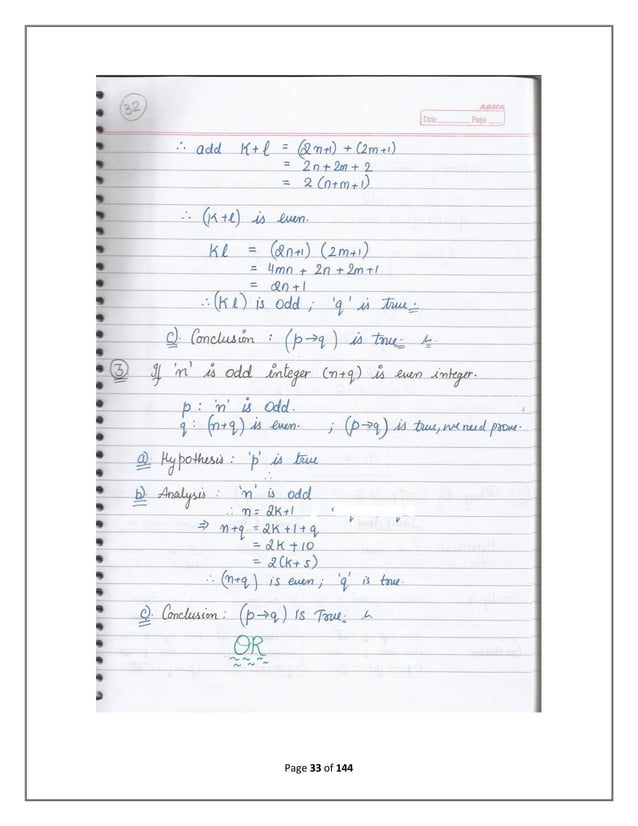 32
ABHA
Date Page
∴ add K+l = (2n+1) + (2m+1)
= 2n+2m+2
= 2(n+m+1)
∴ (K+l) is even.
Kl = (2n+1) (2m+1)
= 4mn + 2n + 2m+1
= 2n+1
∴(Kl) is odd ; 'q' is true
c). Conclusion : (p→q) is true
③ If 'n' is odd integer (n+9) is even integer.
p : 'n' is odd.
q : (n+9) is even. ; (p→q) is true, we need prove.
a). Hypothesis : 'p' is true
b). Analysis : 'n' is odd
∴ n = 2K+1
⇒ n+9 = 2K+1+9
= 2K+10
= 2(K+5)
∴ (n+9) is even ; 'q' is true.
c). Conclusion : (p→q) IS True
OR
Page 33 of 144